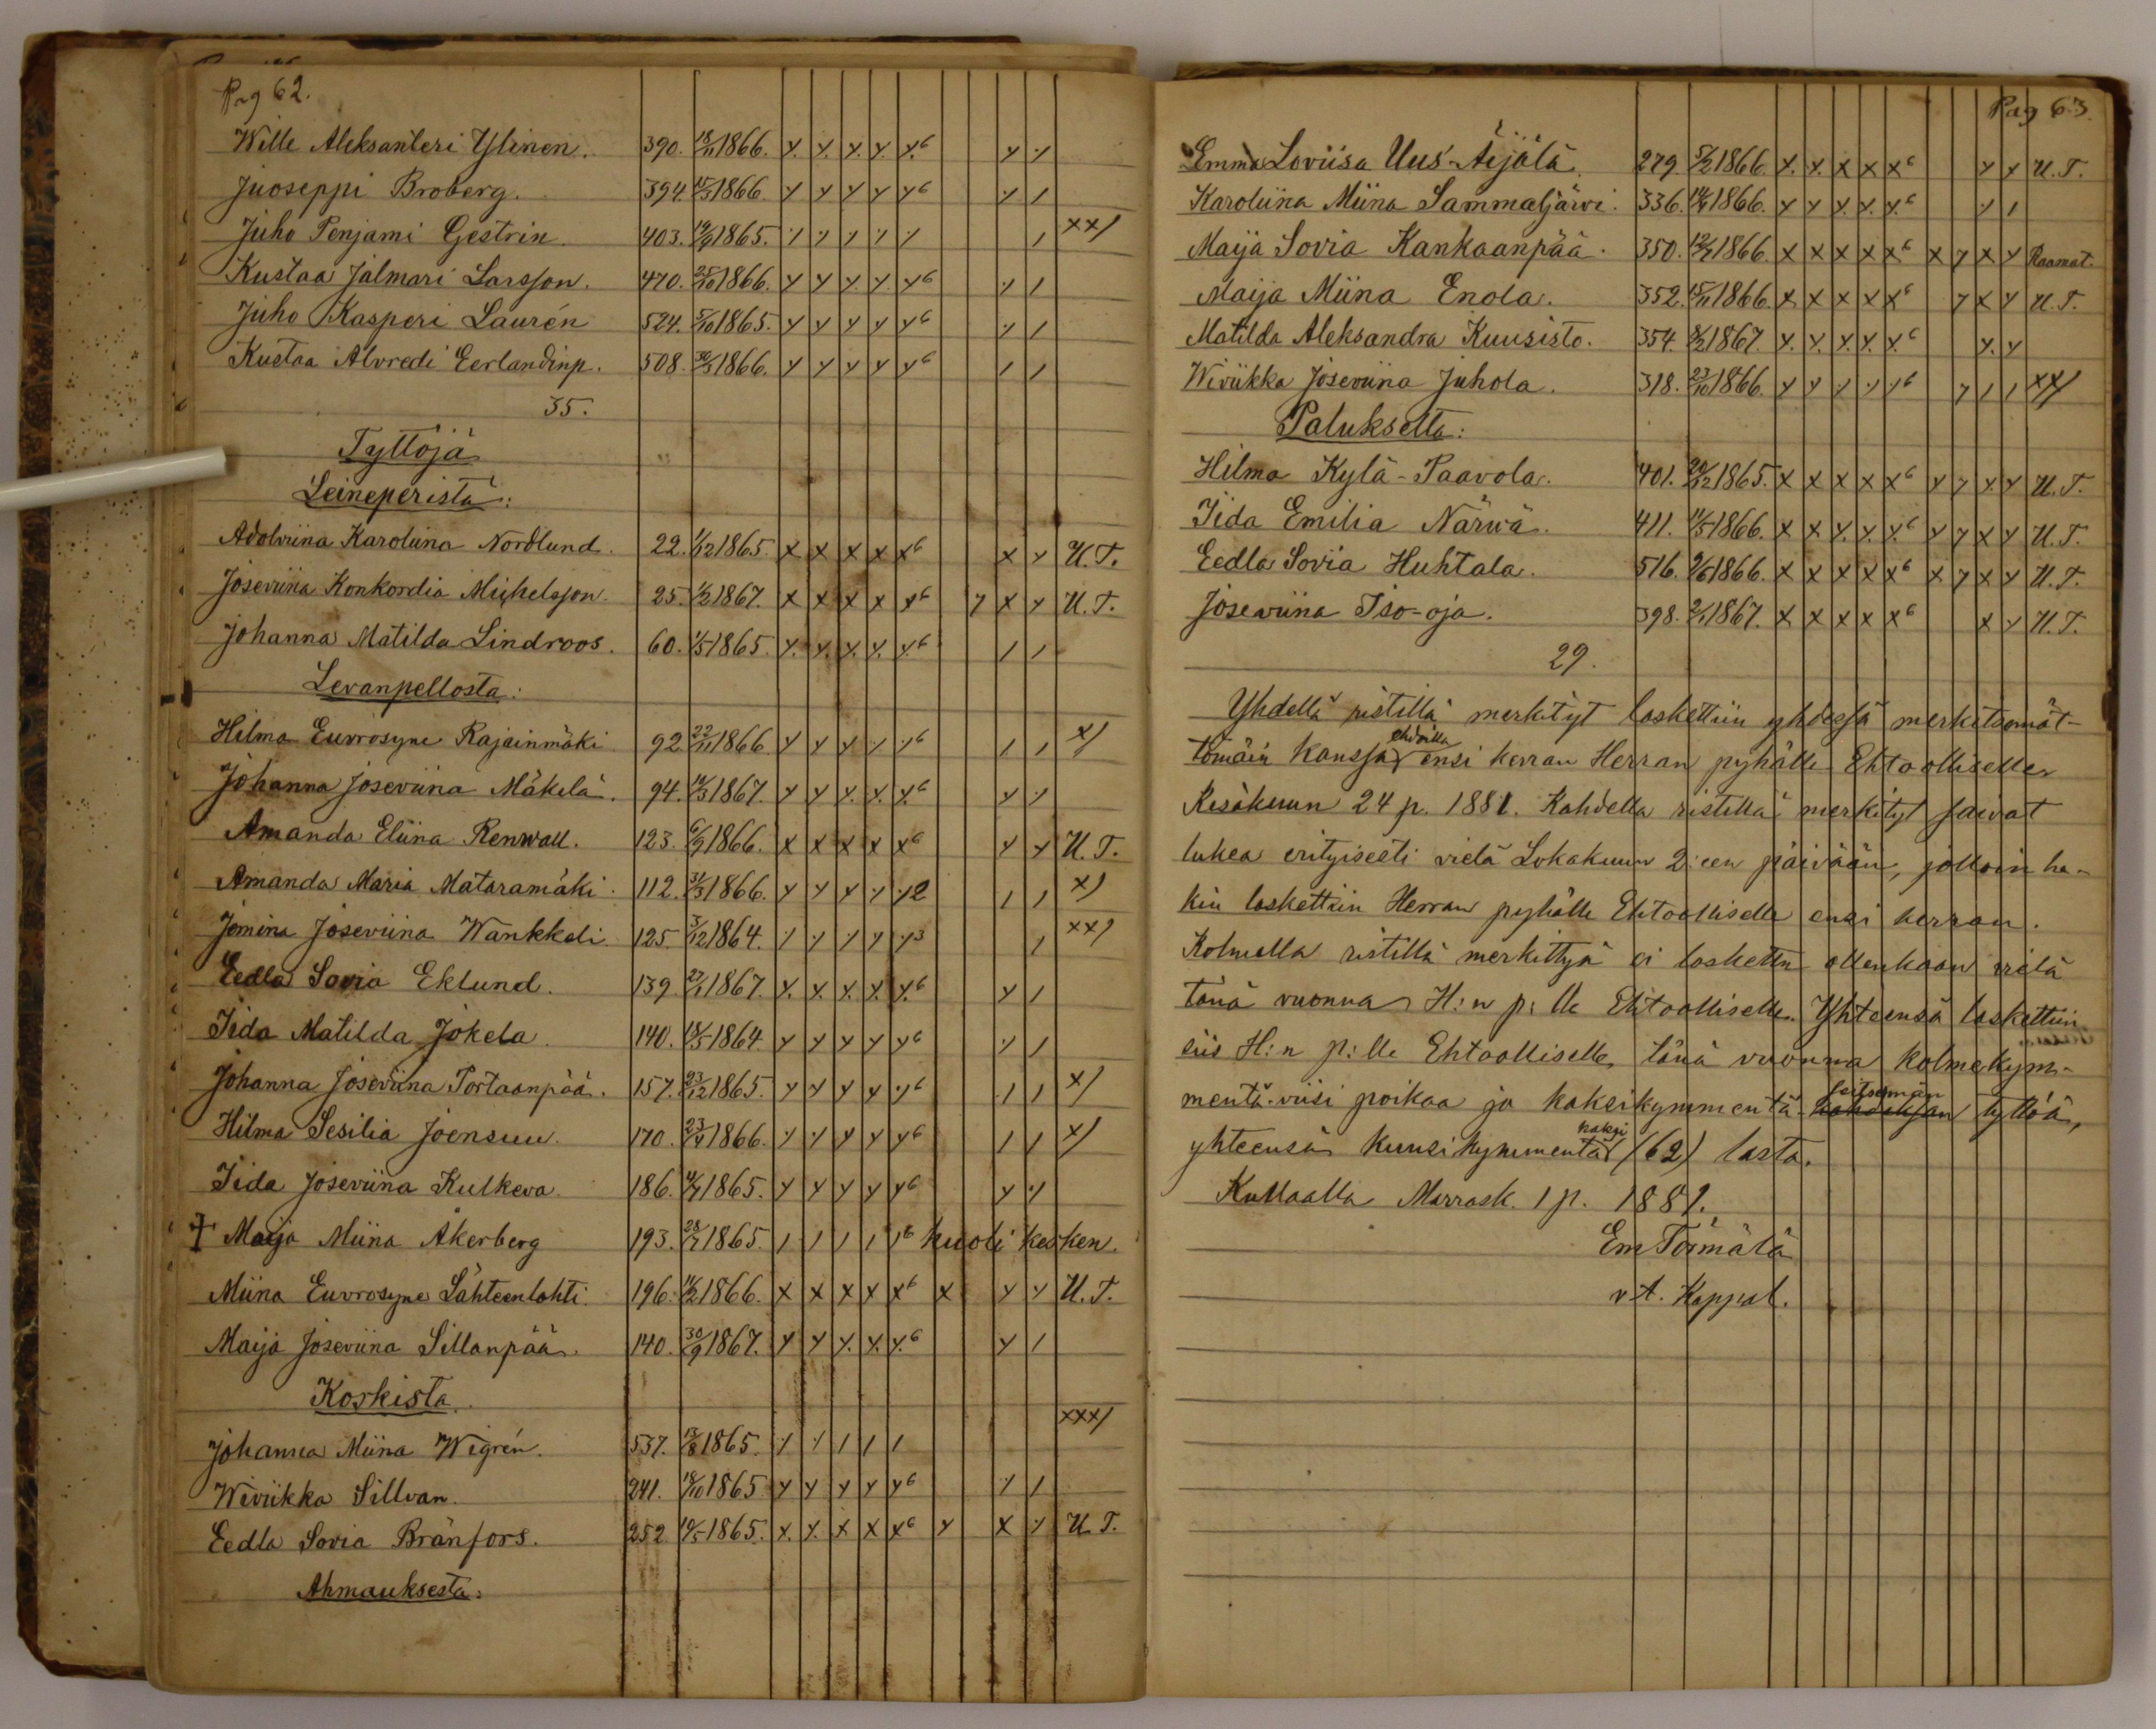 Pag 62.
Wille Aleksanteri Ylinen. 390. 18/11 1866. x. x. x. x. x.6 x x
Juoseppi Broberg. 394. 15/3 1866 x x x x x6 x /
Juho Penjami Gestrin. 403. 19/9 1865. x x / x x / xx/
Kustaa Jalmari Larsson. 470. 25/10 1866. x x x. x. x6 x /
Juho Kasperi Laurén 524. 5/10 1865. x x x x x6 x /
Kustaa Alvredi Eerlandinp. 508. 30/3 1866. x x x x x6 / /
35.
Tyttöjä
Leineperistä:
Adolviina Karoliina Nordlund. 22. 1/12 1865. x x x x x6 x x U.T.
Joseviina Konkordia Mickelsson 25. 1/2 1867. x x x x x6 7 x x U.T.
Johanna Matilda Lindroos. 60. 1/5 1865. x. x. x. x. x.6 / /
Levanpellosta:
Hilma Euvrosyne Rajainmäki 92. 22/11 1866. x x x / x6 / / x/
Johanna Joseviina Mäkelä. 94. 10/3 1867. x x x. x. x.6 x x
Amanda Eliina Renwall. 123. 6/9 1866. x x x x x6 x x U.T.
Amanda Maria Mataramäki. 112. 31/3 1866. x x x / x2 / / x/
Jemina Joseviina Wänkkeli 125. 3/12 1864. / x / x x3 / xx/
Eedla Sovia Eklund. 139. 27/1 1867. x. x. x. x. x.6 x /
Iida Matilda Jokela 140. 18/5 1864 x x x x x6 x /
Johanna Joseviina Portaanpää. 157. 23/12 1865. x x x x x6 / / x/
Hilma Sesilia Joensuu. 170. 23/4 1866. x x x x x6 / / x/
Iida Joseviina Kulkeva. 186. 4/7 1865. x x x x x6 x x
† Maija Miina Åkerberg 193. 28/7 1865. / / / / /6 kuoli kesken.
Miina Euvrosyne Lähteenlahti. 196. 11/2 1866. x x x x x6 x x x U.T.
Maija Joseviina Sillanpää. 140. 30/9 1867. x x x. x. x.6 x /
Koskista.
Johanna Miina Wigrén. 537. 13/8 1865. x x / / / xxx/
Wiviikka Sillvan. 241. 18/10 1865 x x x x x6 x /
Eedla Sovia Bränfors. 252. 10/5 1865. x. x. x x x6 x x x U.T.
Ahmauksesta:
Pag 63.
Emma Loviisa Uus-Äijälä. 279. 5/2 1866. x. x. x x x6 x x U.T.
Karoliina Miina Sammaljärvi. 336. 14/4 1866. x x x. x. x.6 x /
Maija Sovia Kankaanpää. 350. 12/7 1866. x x x x x6 x 7 x x Raamat.
Maija Miina Enola. 352. 15/11 1866. x x x x x6 7 x x U.T.
Matilda Aleksandra Kuusisto. 354. 8/2 1867. x. x. x. x. x.6 x. x
Wiviikka Joseviina Juhola. 318. 23/10 1866. x x x x x6 7 / / xx/
Palukselta:
Hilma Kylä-Paavola. 401. 20/12 1865. x x x x x6 x 7 x x U.T.
Iida Emilia Närwä. 411. 11/5 1866. x x x. x. x.6 x 7 x x U.T.
Eedla Sovia Huhtala. 516. 9/6 1866. x x x x x6 x 7 x x U.T.
Joseviina Iso-oja. 398. 2/1 1867. x x x x x6 x x U.T.
29.
Yhdellä ristillä merkityt laskettiin yhdessä merkitsemät-
tömäin kanssa ehdoilla ensi kerran Herran pyhälle Ehtoolliselle
Kesäkuun 24 p. 1881. Kahdella ristillä merkityt saivat
lukea erityisesti vielä Lokakuun 2:een päivään, jolloin he-
kin laskettiin Herran pyhälle Ehtoolliselle ensi kerran.
Kolmella ristillä merkittyä ei laskettu ollenkaan vielä
tänä vuonna H:n p:lle Ehtoolliselle. Yhteensä laskettiin
siis H:n p:lle Ehtoolliselle tänä vuonna kolmekym-
mentä-viisi poikaa ja kaksikymmentä-kahdeksan seitsemän tyttöä,
yhteensä kuusikymmentä kaksi (62) lasta.
Kullaalla Marrask. 1 p. 1881.
Em Törmälä
v.t. Kappal.